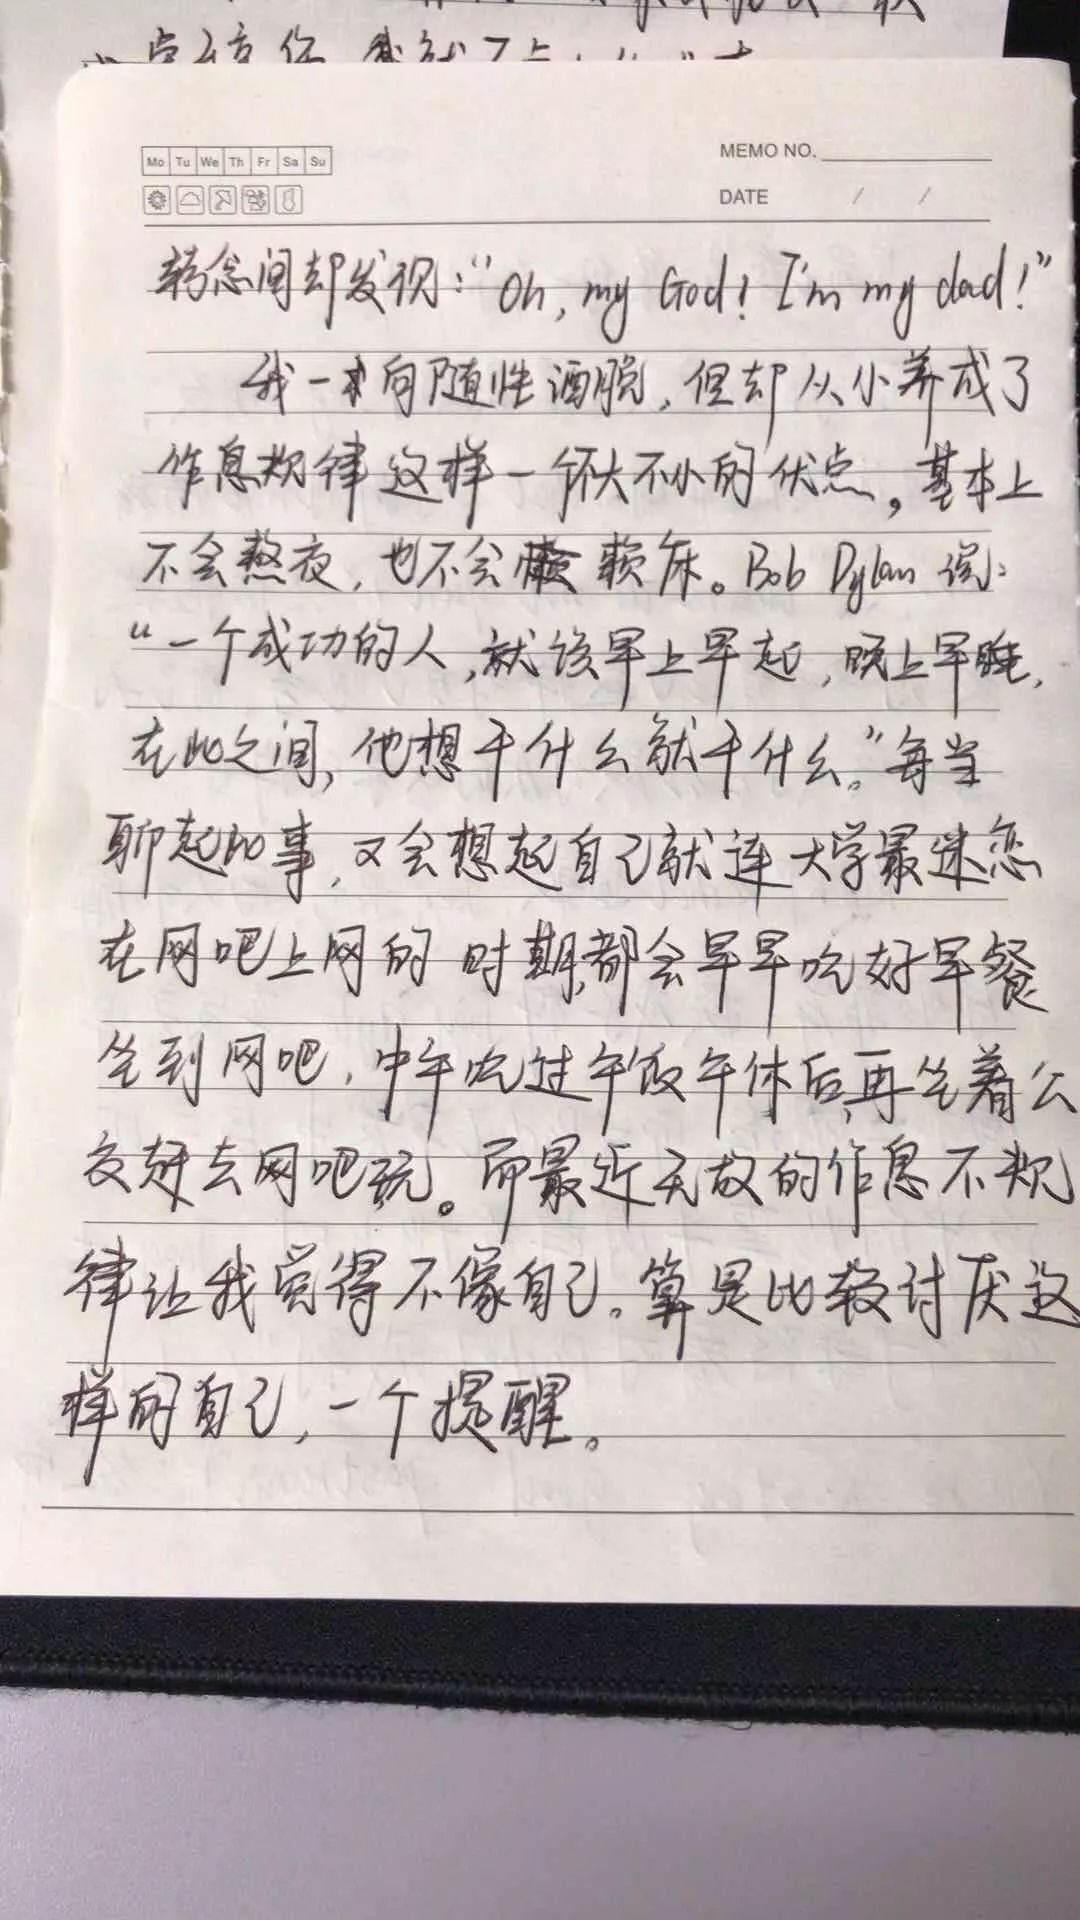 小卖部
Mo Tu We Th Fr Sa Su
MEMO NO.
DATE / /
转念间却发现:“Oh, my God! I'm my dad!”
我一向随性洒脱,但却从小养成了
作息规律这样一个不大不小的优点。基本上
不会熬夜,也不会赖床。Bob Dylan 说:
“一个成功的人,就该早上早起,晚上早睡,
在此之间,他想干什么就干什么。”每当
聊起此事,又会想起自己就连大学最迷恋
在网吧上网的时期,都会早早吃好早餐
坐到网吧,中午吃过午饭午休后,再坐着公
交赶去网吧玩。而最近无故的作息不规
律让我觉得不像自己。算是比较讨厌这
样的自己,一个提醒。